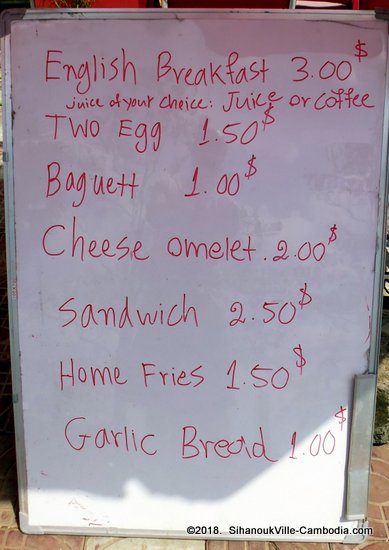 English Breakfast 3.00$
juice of your choice: Juice or coffee
TWO Egg 1.50$
Baguett 1.00$
Cheese omelet. 2.00$
Sandwich 2.50$
Home Fries 1.50$
Garlic Bread 1.00$
©2018. SihanoukVille-Cambodia.com